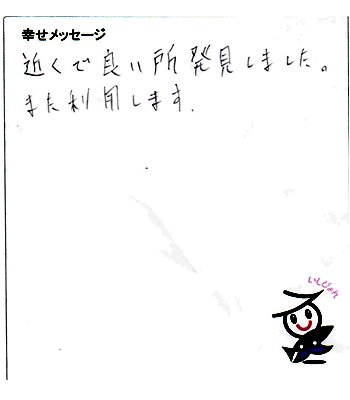 幸せメッセージ
近くで良い所発見しました。
また利用します.